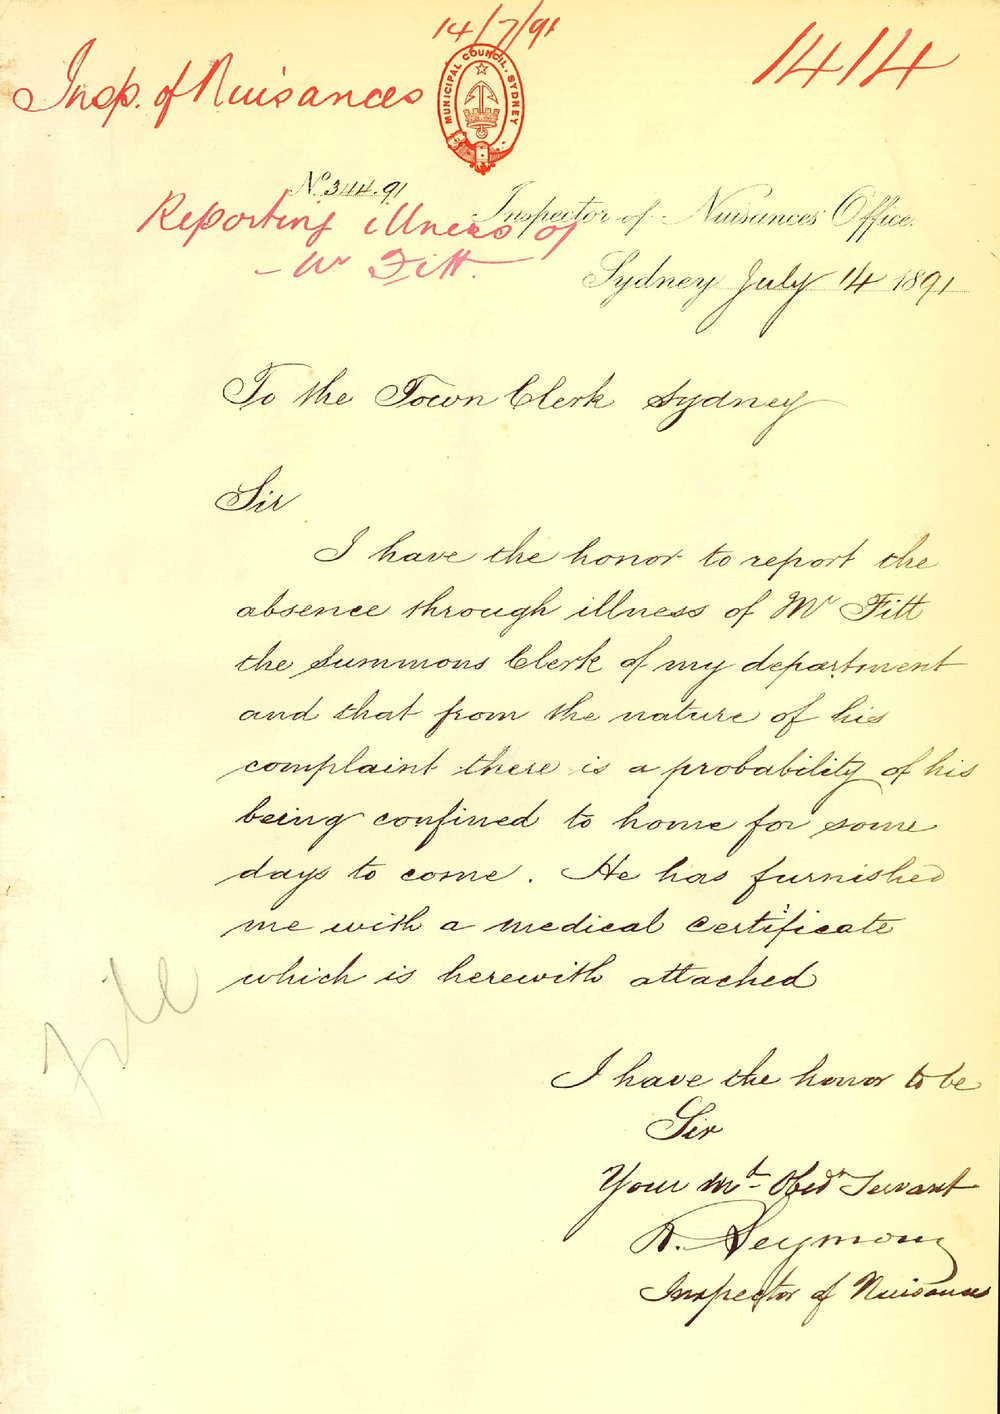 14/7/91
1414
Insp. of Nuisances
MUNICIPAL COUNCIL. SYDNEY
No. 344.91
Reporting illness of
Mr Fitt.
Inspector of Nuisances' Office.
Sydney July 14 1891
To the Town Clerk Sydney
Sir
I have the honor to report the
absence through illness of Mr Fitt
the Summons Clerk of my department
and that from the nature of his
complaint there is a probability of his
being confined to home for some
days to come. He has furnished
me with a medical certificate
which is herewith attached
File
I have the honor to be
Sir
Your Mt Obedt Servant
R. Seymour
Inspector of Nuisances